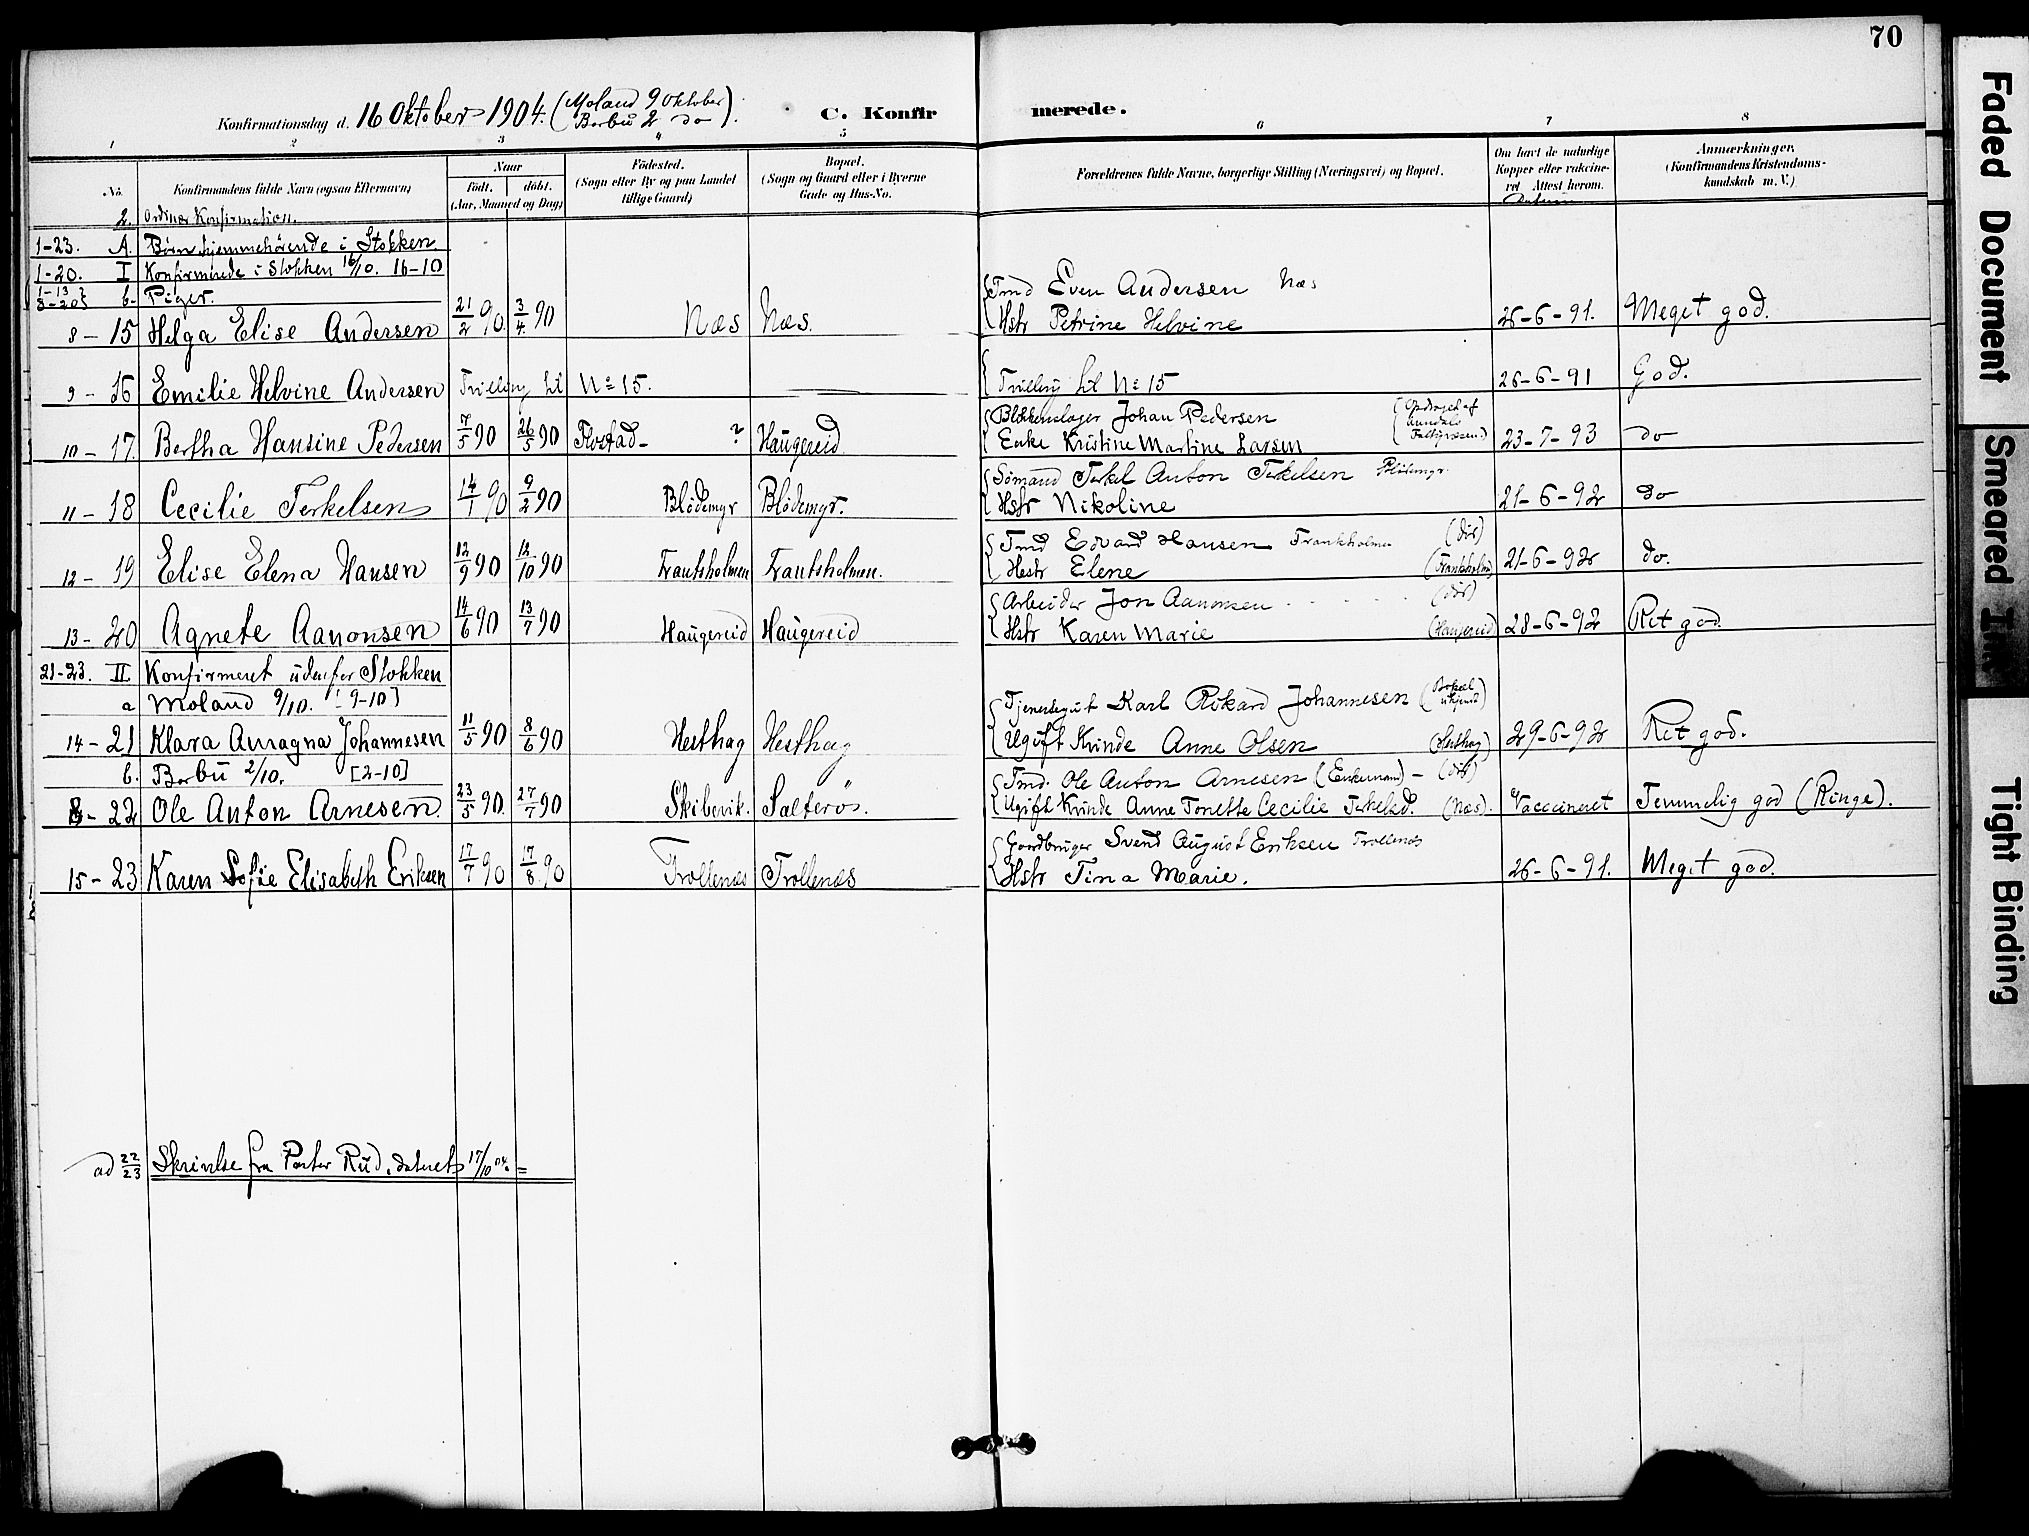 70
Konfirmationsdag d. 16 Oktober 1904. (Moland 9 Oktober)
Barbu 2 do
C. Konfir merede.
1 2 3 4 5 6 7 8
No.
Konfirmandens fulde Navn (ogsaa Efternavn)
Naar
født. døbt.
(Aar, Maaned og Dag)
Fødested.
(Sogn eller By og paa Landet
tillige Gaard)
Bopæl.
(Sogn og Gaard eller i Byerne
Gade og Hus-No.
Forældrenes fulde Navne, borgerlige Stilling (Næringsvei) og Bopæl.
Om havt de naturlige
Kopper eller vakcine-
ret Attest herom.
Datum
Anmærkninger.
(Konfirmandens Kristendoms-
kundskab m. V.)
2. Ordinær Konfirmation.
1-23. A. Børn hjemmehørende i Stokken
1-20. I Konfirmerede i Stokken 16/10. 16-10
1-13
8-20} b. Piger.
8 - 15 Helga Elise Andersen 21/2 90. 3/4. 90 Næs Næs. Tmd Even Andersen Næs
Hstr Petrine Helvine 26-6-91. Meget god.
9 - 16 Emilie Helvine Andersen Tvilling til No 15. Tvilling til No 15 26-6-91 God.
10 - 17. Bertha Hansine Pedersen 7/5 90 26/5 90 Flostad- ? Haugereid Blokkemager Johan Pedersen (Opdraget af
Arendals
Fattigvæsen.)
Enke Kristine Martine Larsen 23-7-93 do
11 - 18 Cecilie Terkelsen 14/1 90 9/2 90 Blødemyr Blødemyr. Sømand Terkel Anton Terkelsen Blødemyr
Hstr Nikoline 21-6-92 do
12 - 19 Elise Elena Hansen 12/9 90 12/10 90 Frantsholmen Frantsholmen. Tmd Edvard Hansen Frankholmen (død)
Hestr Elene 21-6-92 do.
13 - 20 Agnete Aanonsen 14/6 90 13/7 90 Haugereid Haugereid Arbeider Jon Aanonsen (død)
Hstr Karen Marie (Haugereid) 28-6-92 Ret god.
21-23. II Konfirmeret udenfor Stokken
a Moland 9/10. [9-10]
14 - 21 Klara Amagna Johannesen 11/5 90 8/6 90 Hesthag Hesthag Tjenestegut Karl Rikard Johannesen (Bopæl
ukjendt)
Ugift Kvinde Anne Olsen (Hesthag) 29-6-92 Ret god.
b. Barbu 2/10. [2-10]
8 - 22 Ole Anton Arnesen. 23/5 90. 27/7 90 Skibevik. Salterøs. Tmd. Ole Anton Arnesen (Enkemand) - (død)
Ugift Kvinde Anne Tonette Cecilie Terkelsd. (Næs). Vaccineret Temmelig god (Ringe).
15 - 23 Karen Sofie Elisabeth Eriksen 17/7 90 17/8 90 Trollenæs Trollenæs Gaardbruger Svend August Eriksen Trollenæs
Hstr Tina Marie. 26-6-91. Meget god.
ad 22/23 Skrivelse fra Pastor Rud, dateret 17/10 04.
Faded Document
Smeared Ink
Tight Binding